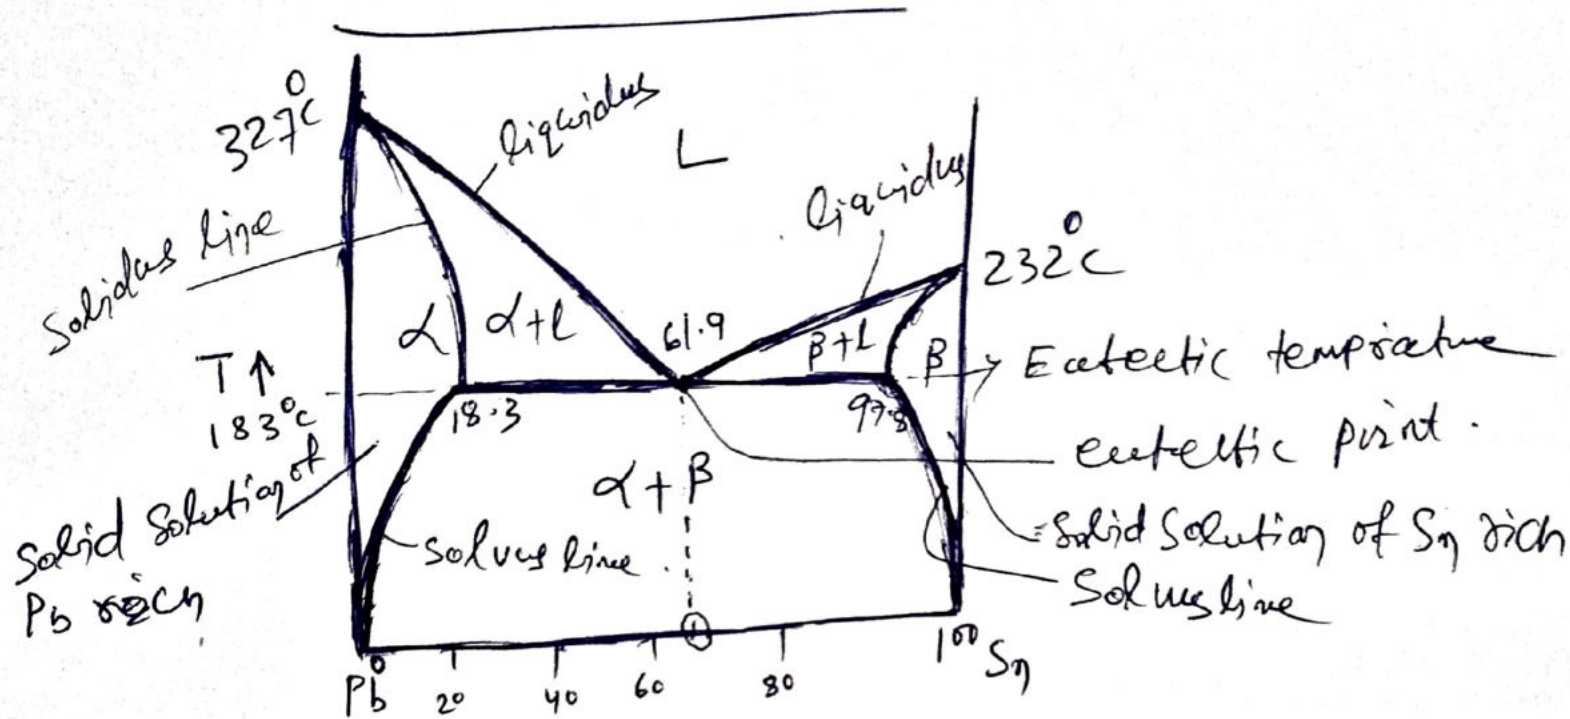 327°C
liquidus
L
liquidus
232°C
Solidus line
α
α+l
61.9
β+L
β
Eutectic temprature
T↑
183°C
18.3
97.8
eutectic point.
Solid Solution of
Pb rich
α+β
Solvus line
Solid Solution of Sn rich
Solvus line
1
0
20
40
60
80
100
Pb
Sn